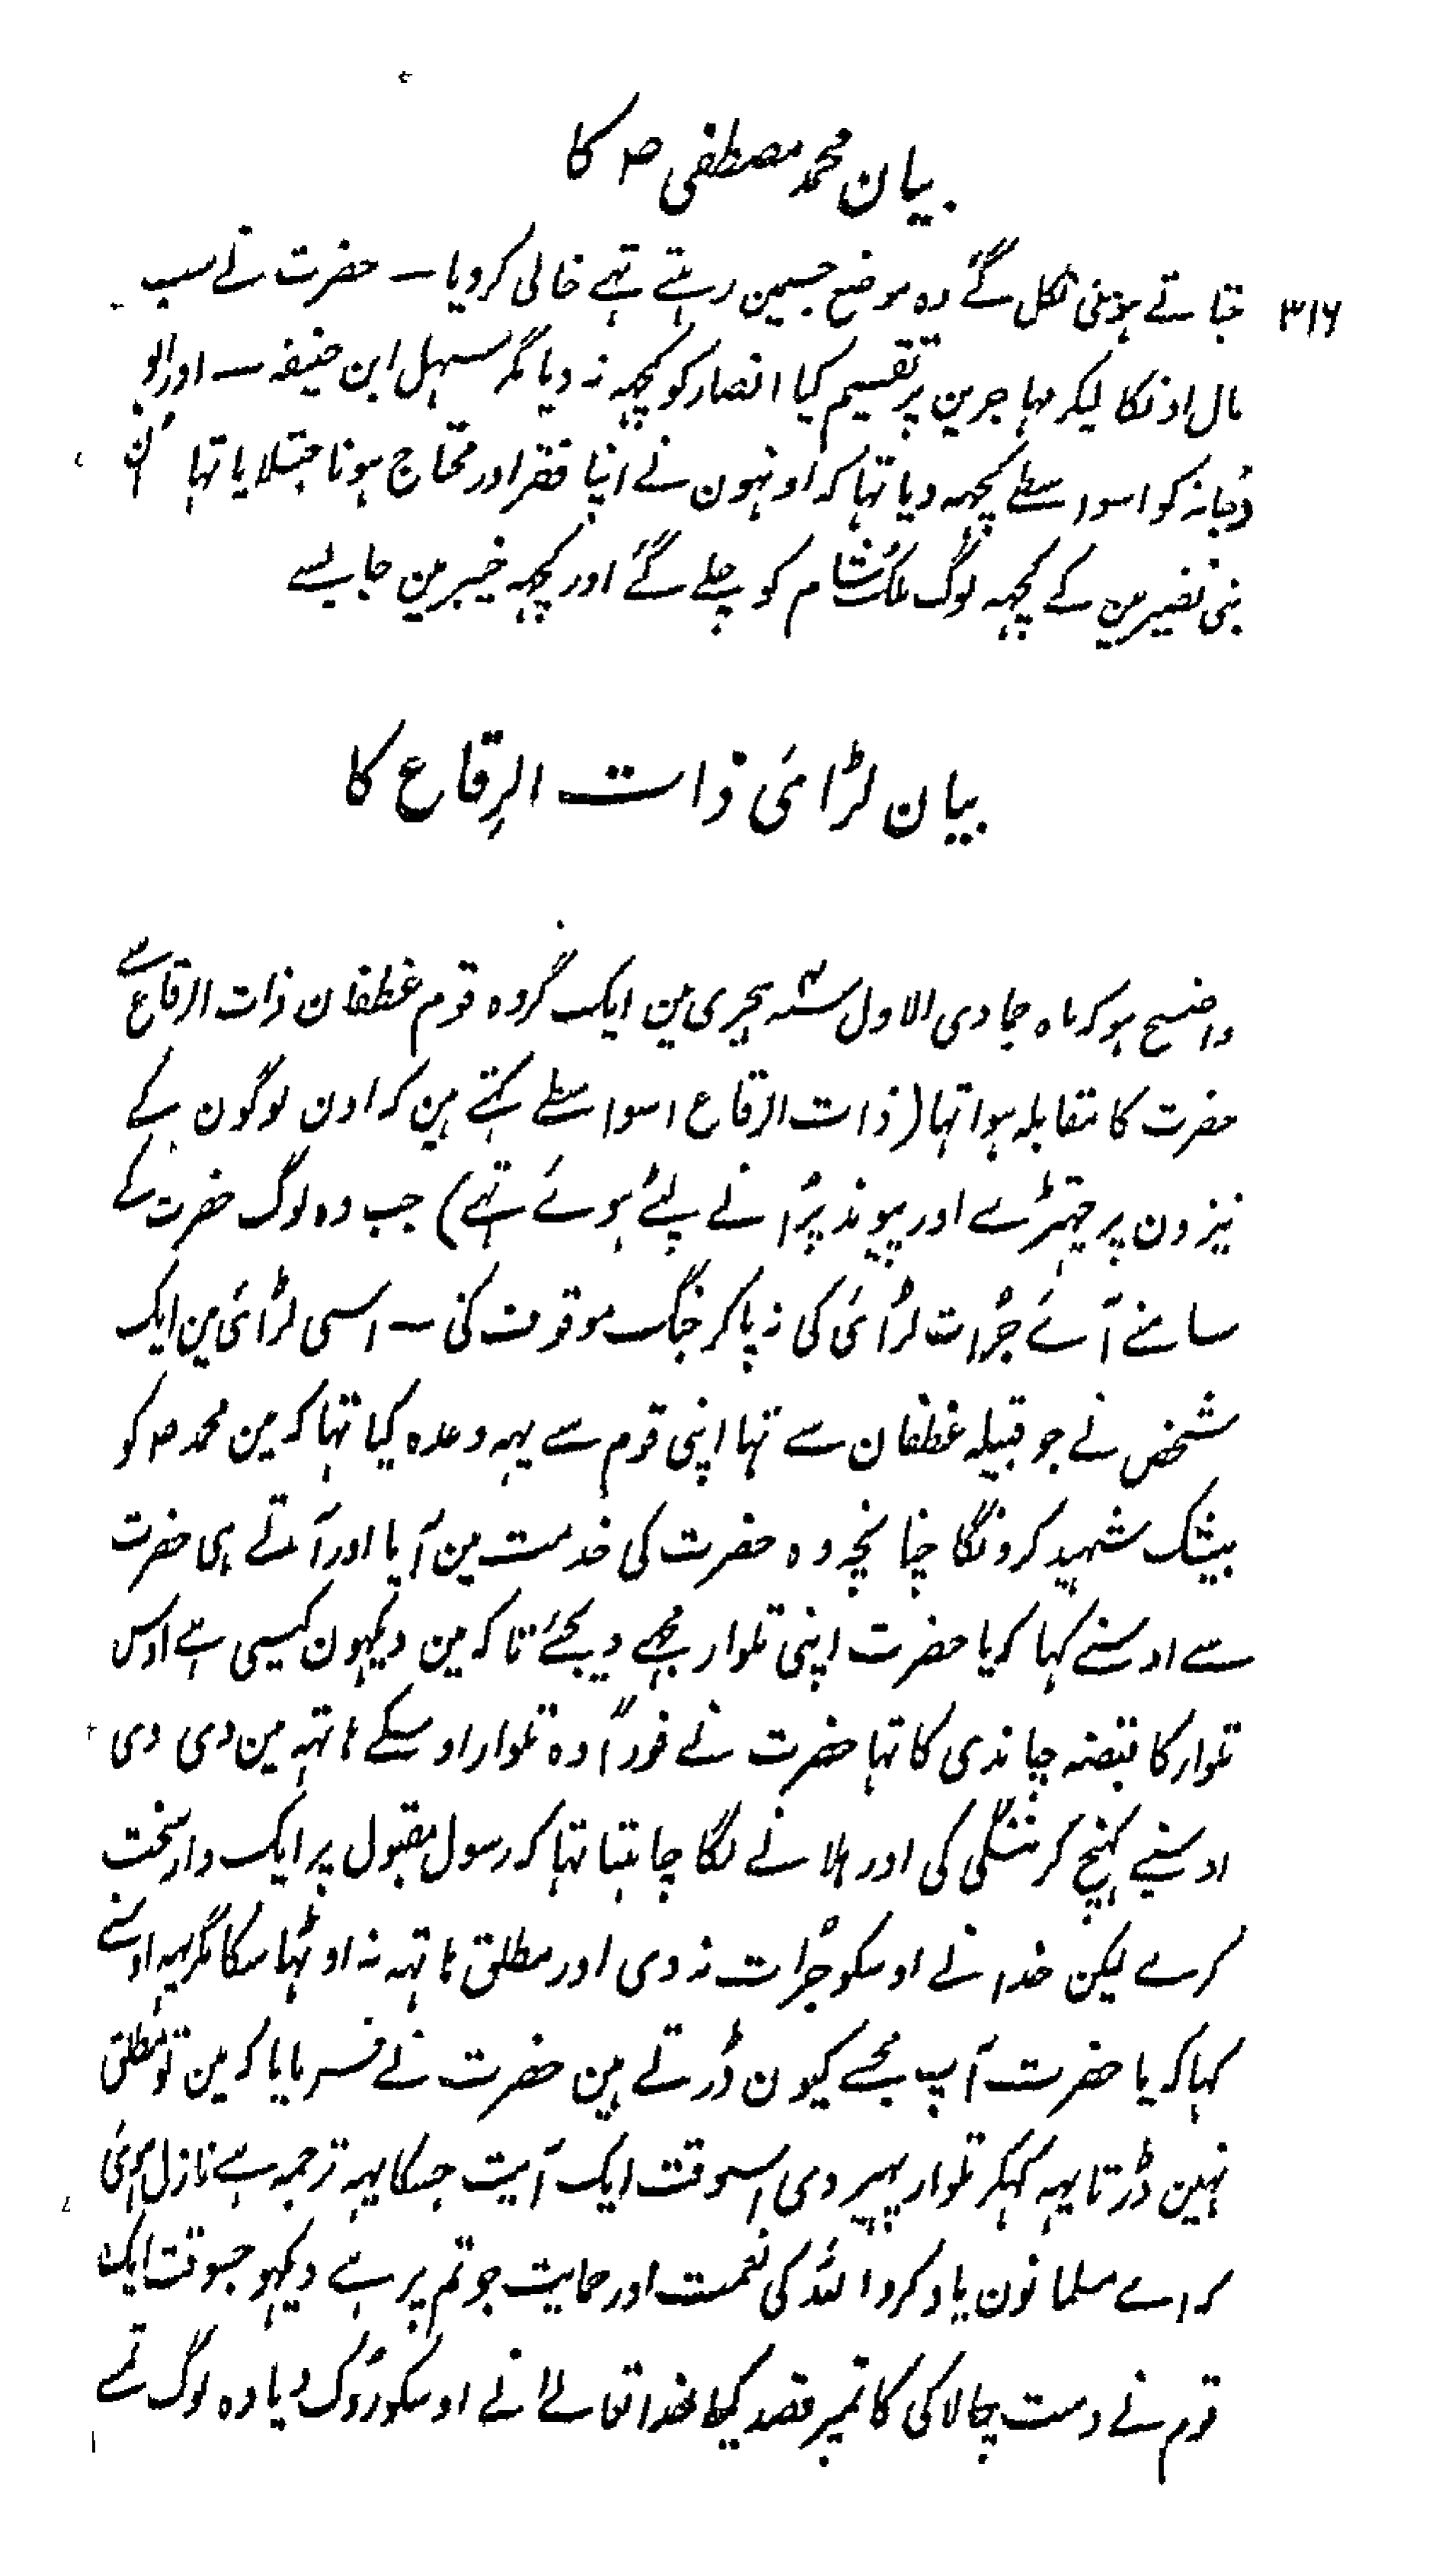 بیان محمد مصطفی ؐ کا
۳۱۶
بجاتے ہوئی نکل گئے وہ موضع جسمین رہتے تہے خالی کر دیا — حضرت نے سب
مال اونکا لیکر مہاجرین پر تقسیم کیا انصار کو کچہہ نہ دیا مگر سہل ابن حنیفہ — اور ابو
دُجانہ کو اسواسطے کچہہ دیا تہا کہ اونہون نے اپنا فقر اور محتاج ہونا جتلایا تہا اُن
بنی نضیر مین کے کچہہ لوگ ملک شام کو چلے گئے اور کچہہ خیبر مین جا بسے
بیان لڑائی ذات الرِقاع کا
واضح ہو کہ ماہ جمادی الاول سنہ ۴ ہجری مین ایک گروہ قوم غطفان ذات الرقاع سے
حضرت کا مقابلہ ہوا تہا (ذات الرقاع اسواسطے کہتے ہین کہ اون لوگون کے
نیزون پر چیتہڑے اور پیوند پُرانے لپٹے ہوئے تہے) جب وہ لوگ حضرت کے
سامنے آئے جُرات لڑائی کی نہ پا کر جنگ موقوف کی — اسی لڑائی مین ایک
شخص نے جو قبیلہ غطفان سے تہا اپنی قوم سے یہہ وعدہ کیا تہا کہ مین محمد ؐ کو
بیشک شہید کرونگا چنانچہ وہ حضرت کی خدمت مین آیا اور آتے ہی حضرت
سے اوسنے کہا کہ یا حضرت اپنی تلوار مجھے دیجئے تاکہ مین دیکہون کیسی ہے اوس
تلوار کا قبضہ چاندی کا تہا حضرت نے فوراً وہ تلوار اوسکے ہاتہہ مین دی دی
اوسنے کہینچ کر ننگی کی اور ہلانے لگا چاہتا تہا کہ رسول مقبول پر ایک وار سخت
کرے لیکن خدا نے اوسکو جُرات نہ دی اور مطلق ہاتہہ نہ اوٹہا سکا مگر یہہ اوسنے
کہا کہ یا حضرت آپ مجسے کیون ڈرتے ہین حضرت نے فرمایا کہ مین تو مطلق
نہین ڈرتا یہہ کہکر تلوار پہیر دی اسوقت ایک آیت جسکا یہہ ترجمہ ہے نازل ہوئی
کہ اے مسلمانون یاد کرو اللہ کی نعمت اور حمایت جو تم پر ہے دیکہو جسوقت ایک
قوم نے دست چالاکی کا تمپر قصد کیا خدا تعالےٰ نے اوسکو روک دیا وہ لوگ تمسے